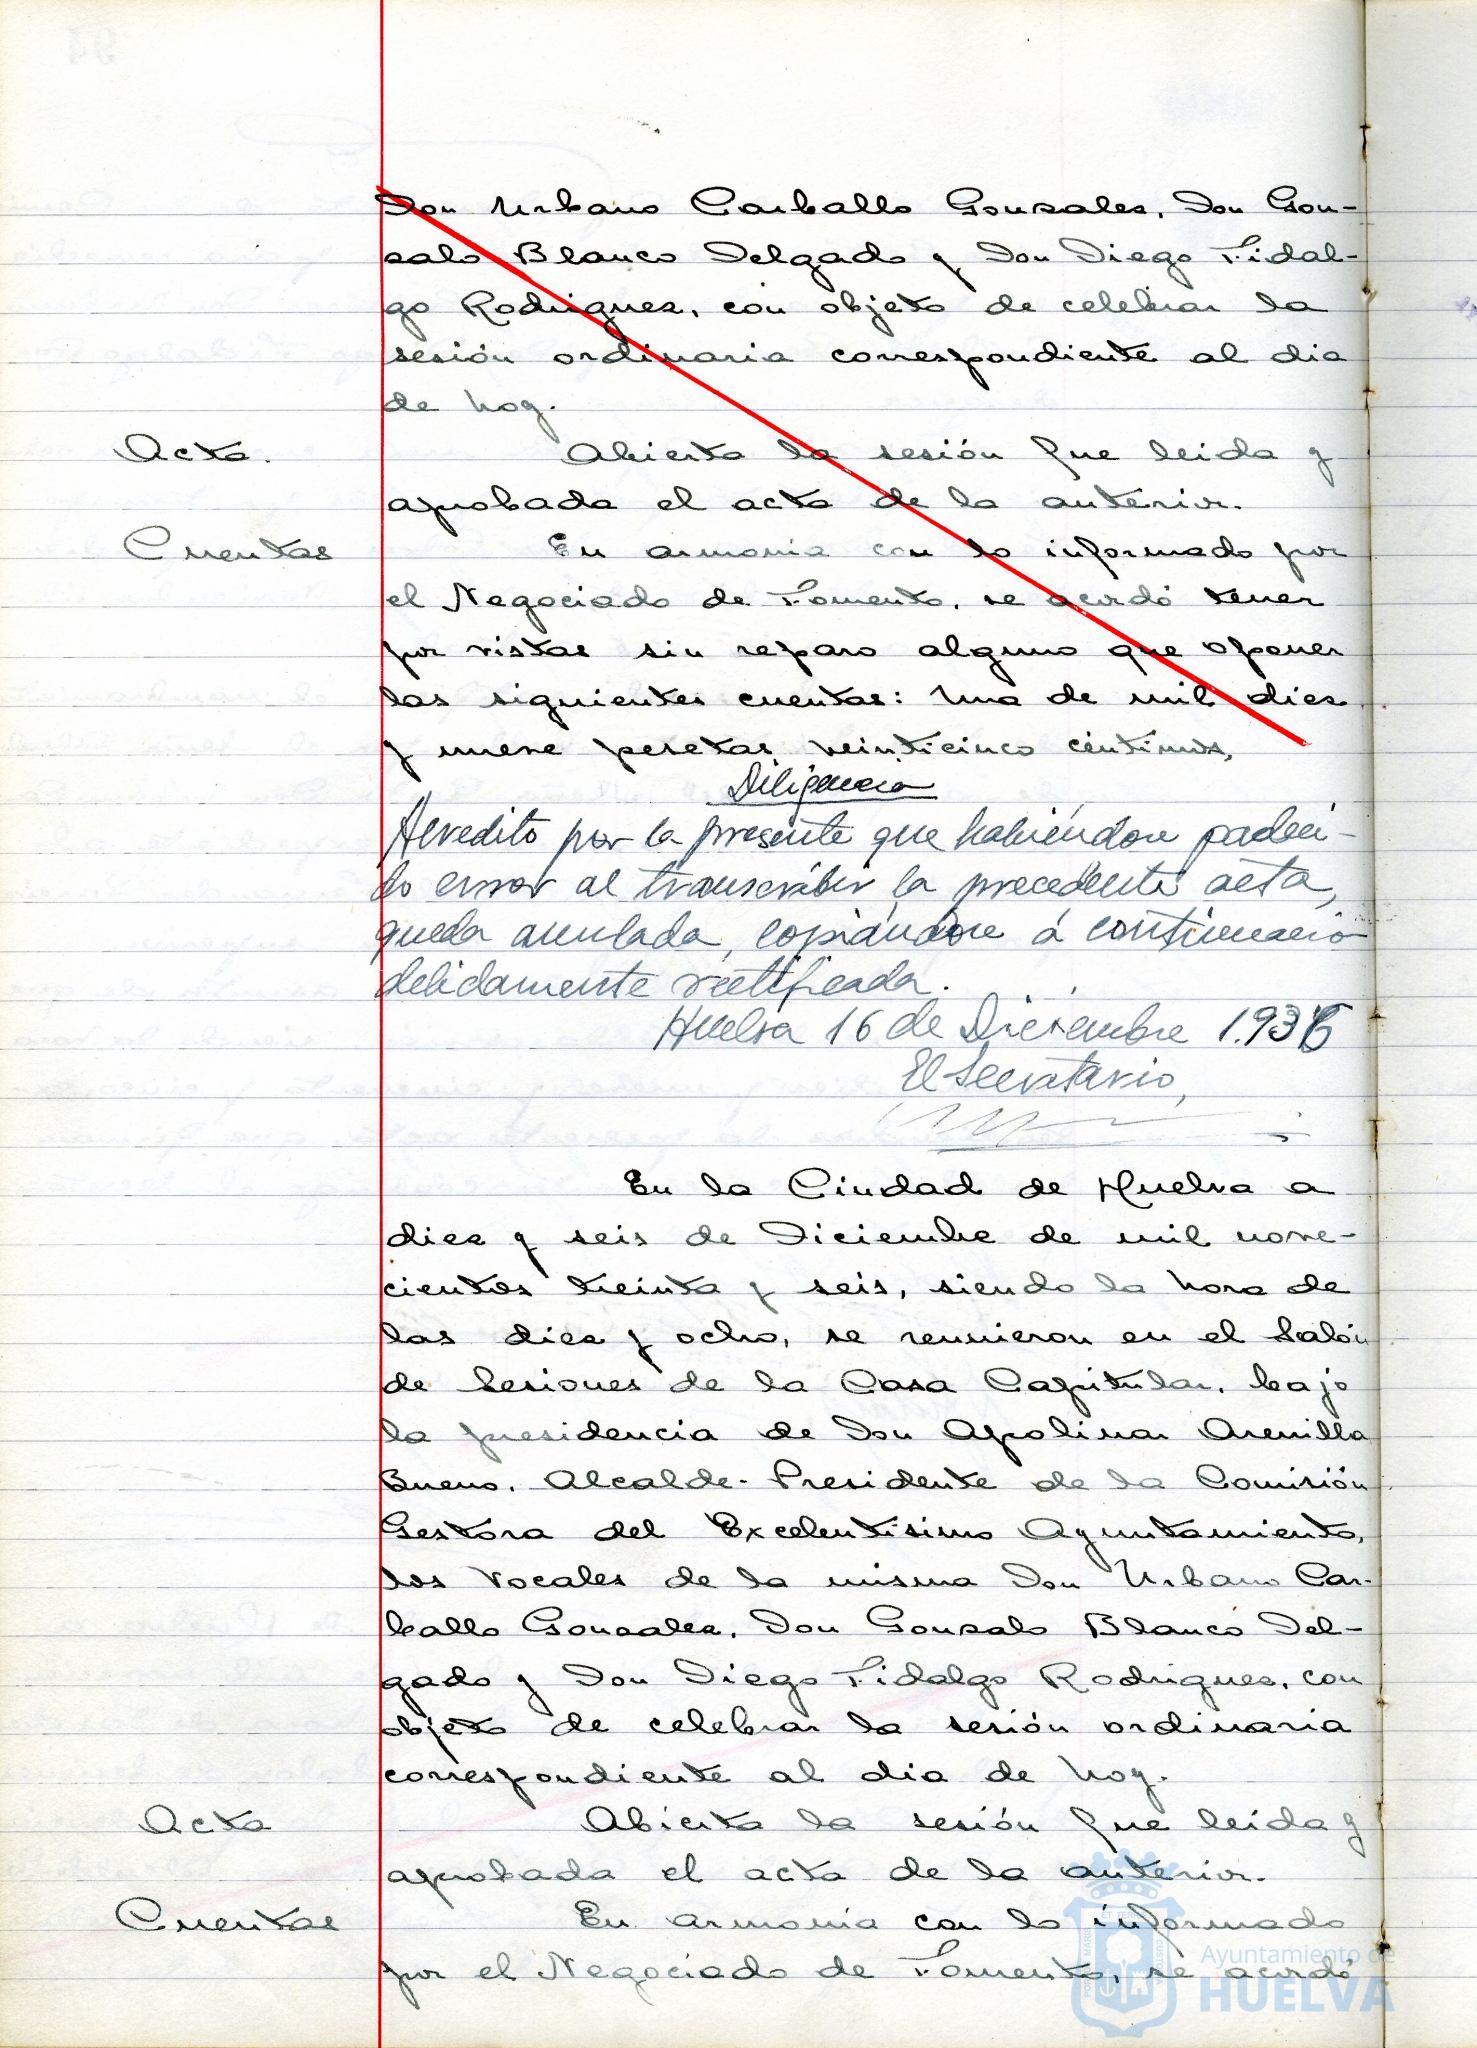 Don Urbano Carballo Gonzales, Don Gon-
zalo Blanco Delgado y Don Diego Fidal-
go Rodriguez, con objeto de celebrar la
sesión ordinaria correspondiente al dia
de hoy.
Acta.
Abierta la sesión fue leida y
aprobada el acta de la anterior.
Cuentas
En armonia con lo informado por
el Negociado de Fomento, se acordó tener
por vistas sin reparo alguno que oponer
las siguientes cuentas: Una de mil diez
y nueve pesetas veinticinco céntimos,
Diligencia
Acredito por la presente que habiéndose padeci-
do error al transcribir la precedente acta,
queda anulada, copiándose á continuació
debidamente rectificada.
Huelva 16 de Diciembre 1.936
El Secretario,
En la Ciudad de Huelva a
diez y seis de Diciembre de mil nove-
cientos treinta y seis, siendo la hora de
las diez y ocho, se reunieron en el Salón
de Sesiones de la Casa Capitular, bajo
la presidencia de Don Apolinar Arenilla
Bueno, Alcalde-Presidente de la Comisión
Gestora del Excelentisimo Ayuntamiento,
los Vocales de la misma Don Urbano Car-
ballo Gonzalez, Don Gonzalo Blanco Del-
gado y Don Diego Fidalgo Rodriguez, con
objeto de celebrar la sesión ordinaria
correspondiente al dia de hoy.
Acta
Abierta la sesión fue leida y
aprobada el acta de la anterior.
Cuentas
En armonia con lo informado
por el Negociado de Fomento, se acordó
Ayuntamiento de
HUELVA